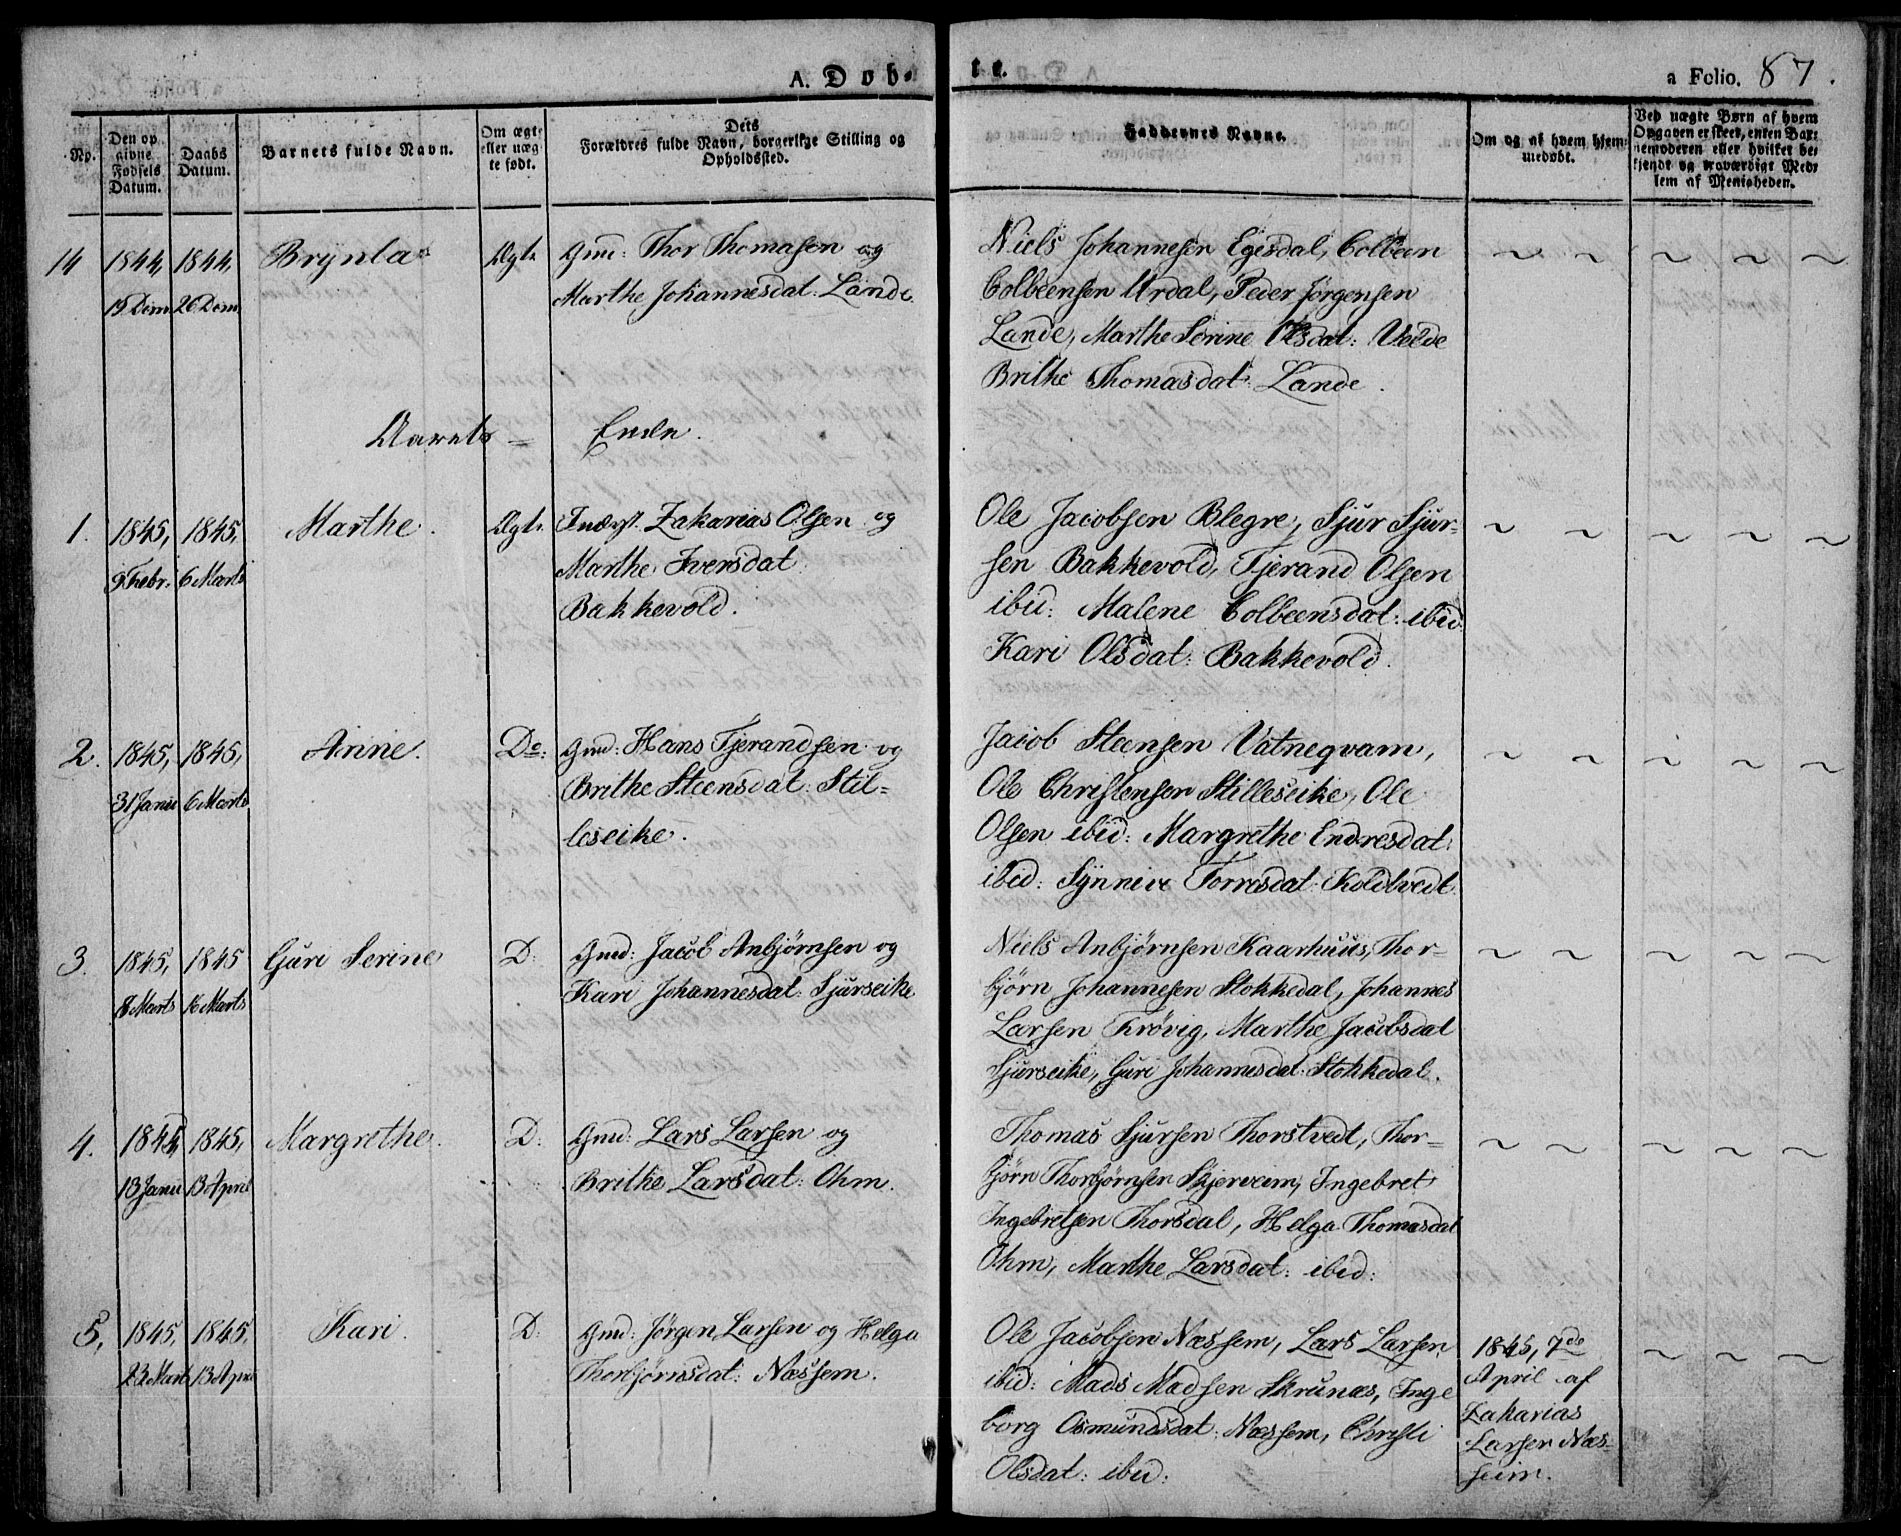 A. Døb-
te.
a Folio. 87.
No.
Den op
givne
Fødsels
Datum.
Daabs
Datum.
Barnets fulde Navn.
Om ægte
eller uæg
te født.
Dets
Forældres fulde Navn, borgerlige Stilling og
Opholdssted.
Faddernes Navne.
Om og af hvem hjem-
medøbt.
Ved uægte Børn af hvem
Opgaven er skeet, enten Bar-
nemoderen eller hvilket be
kjendt og troværdigt Med-
lem af Menigheden.
14 1844, 1844, Brynla Ægte Gmd: Thor Thomasen og
19 Dcm 26 Dcm Marthe Johannesdat: Lande.
Niels Johannesen Egesdal, Colbeen
Colbeensen Urdal, Peder Jørgensen
Lande, Marthe Serine Olsdat: Velde
Brithe Thomasdat: Lande.
Aarets = Ende.
1. 1845, 1845, Marthe. Ægte Indrst. Zakarias Olsen og
9 Febr: 6 Marts Marthe Iversdat
Bakkevold.
Ole Jacobsen Blegre, Sjur Sjur-
sen Bakkevold, Tjerand Olsen
ibid: Malene Colbeensdat: ibid
Kari Olsdat: Bakkevold.
2. 1845, 1845, Anne. Do: Gmd: Hans Tjerandsen og
31 Janu 6 Marts Brithe Steensdat: Stil=
leseike.
Jacob Steensen Vatneqvam,
Ole Christensen Stilleseike, Ole
Olsen ibid: Margrethe Endresdat:
ibid: Synneve Torresdat: Koldtvedt
3. 1845, 1845 Guri Serine D: Gmd: Jacob Anbjørnsen og
8 Marts 16 Marts Kari Johannesdat: Sjurseike
Niels Anbjørnsen Kaarhuus, Thor-
bjørn Johannesen Stokkedal, Johannes
Larsen Krøvig, Marthe Jacobsdat
Sjurseike, Guri Johannesdat: Stokkedal.
4. 1845, 1845, Margrethe. D: Gmd: Lars Larsen og
13 Janu 13 April Brithe Larsdat: Ohm.
Thomas Sjursen Thorstvedt, Thor-
bjørn Thorbjørnsen Skjerveim, Ingebret
Ingebretsen Thorsdal, Helga Thomasdat
Ohm, Marthe Larsdat: ibid:
5, 1845, 1845, Kari. D: Gmd: Jørgen Larsen og Helga
23 Marts 13 April Thorbjørnsdat: Næssem.
Ole Jacobsen Næssem, Lars Larsen
ibid: Mads Madsen Skrunæs, Inge
borg Osmundsdat: Næssem, Christi
Olsdat: ibid:
1845, 7de
April af
Zakarias
Larsen Næs-
seim.